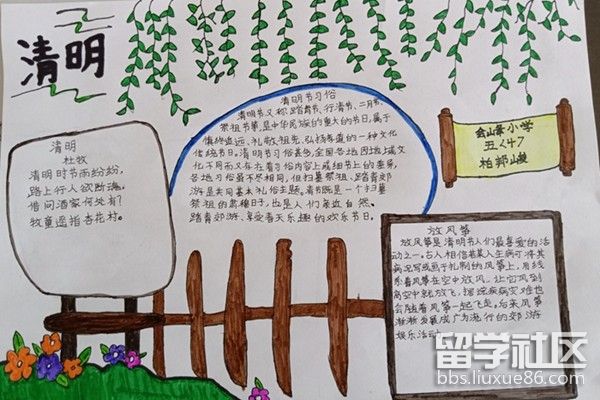 清明
清明
杜牧
清明时节雨纷纷,
路上行人欲断魂。
借问酒家何处有?
牧童遥指杏花村。
清明节习俗
清明节又称踏青节、行清节、三月节、
祭祖节等,是中华民族的重大的节日,属于
慎终追远、礼敬祖先、弘扬孝道的一种文化
传统节日。清明节习俗甚多,全国各地因地域文
化不同而又存在着习俗内容上或细节上的差异,
各地习俗虽不尽相同,但扫墓祭祖、踏青郊
游是共同基本礼俗主题。清明节既是一个扫墓
祭祖的肃穆日子,也是人们亲近自然、
踏青郊游、享受春天乐趣的欢乐节日。
小学
放风筝
放风筝是清明节人们最喜爱的活
动之一。古人相信某人生病可将其
病况写或画于扎制的风筝上,用线
系着风筝在空中放风,让它飞到
高空中就放飞,摆脱疾病灾难也
会随着风筝一起飞走,后来风筝
渐渐发展成广为流行的郊游
娱乐活动
留学社区
bbs.liuxue86.com